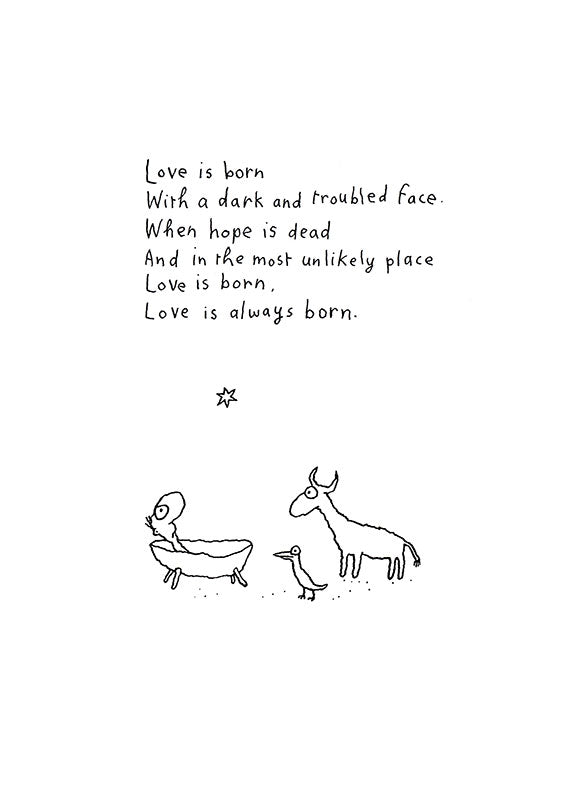 Love is born
With a dark and troubled face.
When hope is dead
And in the most unlikely place
Love is born,
Love is always born.